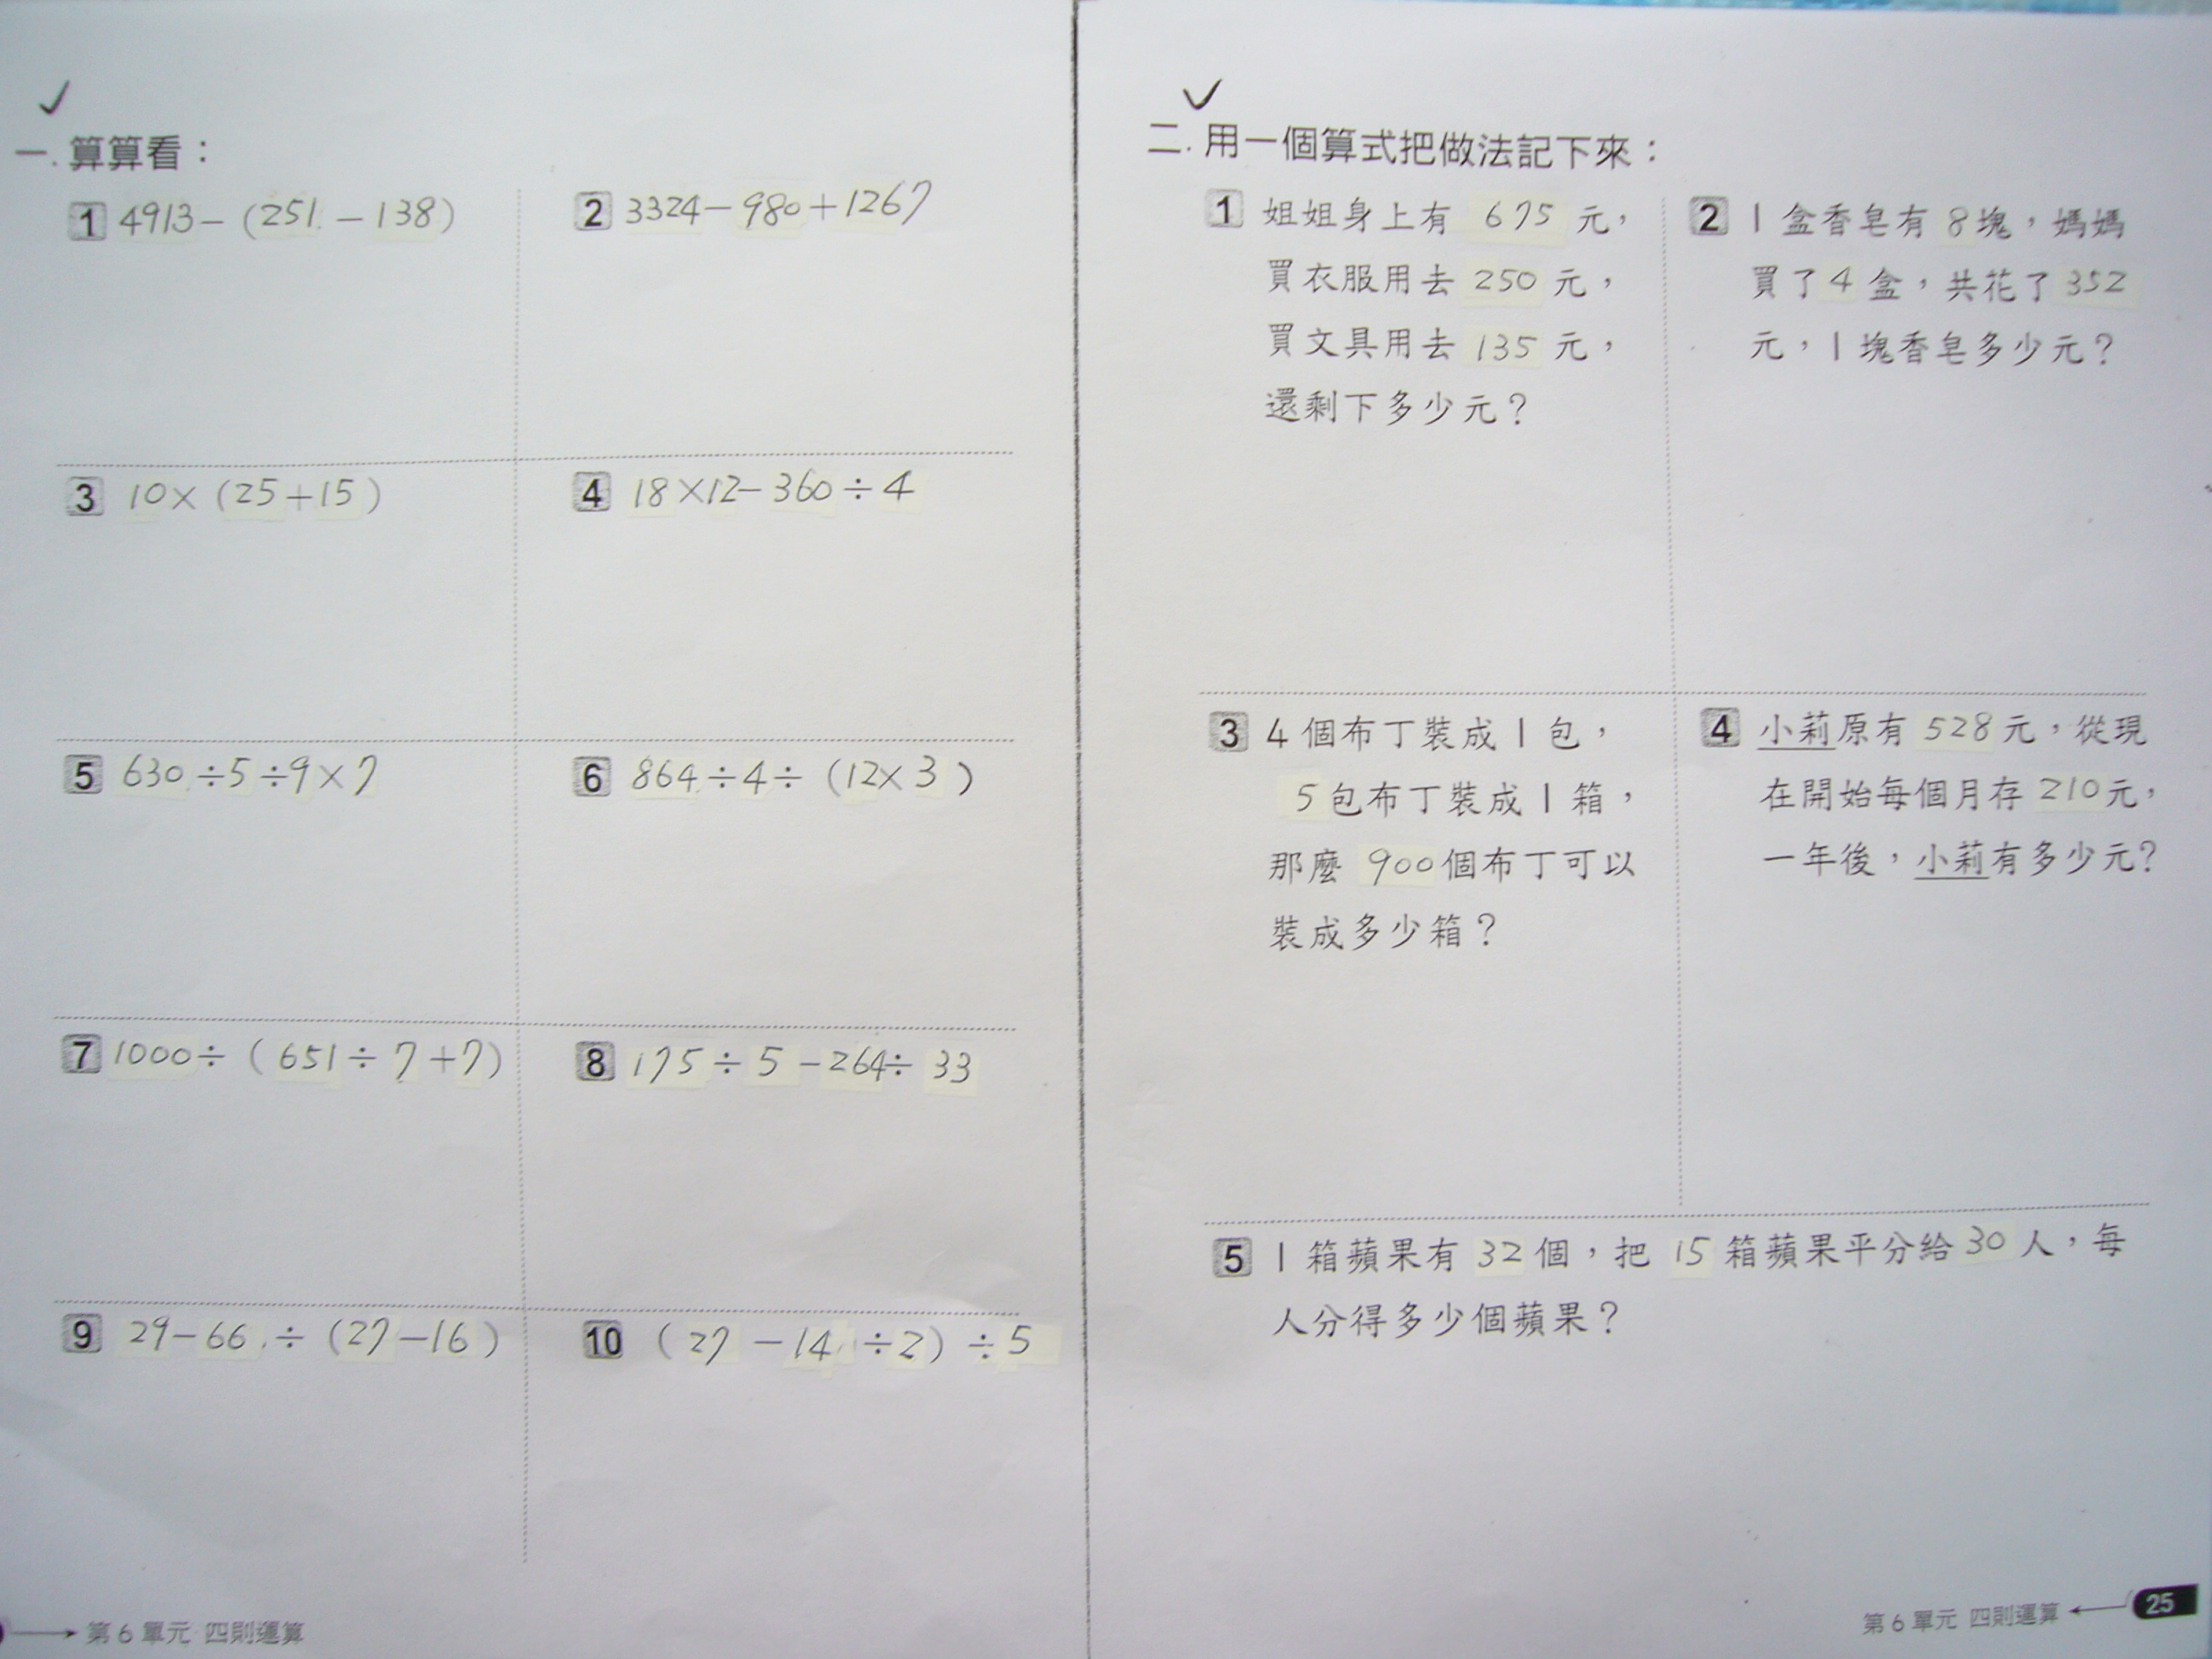 一. 算算看：
1 4913－(251－138)
2 3324－980＋1267
3 10×(25＋15)
4 18×12－360÷4
5 630÷5÷9×7
6 864÷4÷(12×3)
7 1000÷(651÷7＋7)
8 175÷5－264÷33
9 29－66÷(27－16)
10 (27－14÷2)÷5
第6單元 四則運算
二. 用一個算式把做法記下來：
1 姐姐身上有 675 元，
買衣服用去 250 元，
買文具用去 135 元，
還剩下多少元？
2 1 盒香皂有 8 塊，媽媽
買了 4 盒，共花了 352
元，1 塊香皂多少元？
3 4 個布丁裝成 1 包，
5 包布丁裝成 1 箱，
那麼 900 個布丁可以
裝成多少箱？
4 小莉原有 528 元，從現
在開始每個月存 210 元，
一年後，小莉有多少元？
5 1 箱蘋果有 32 個，把 15 箱蘋果平分給 30 人，每
人分得多少個蘋果？
第6單元 四則運算 25